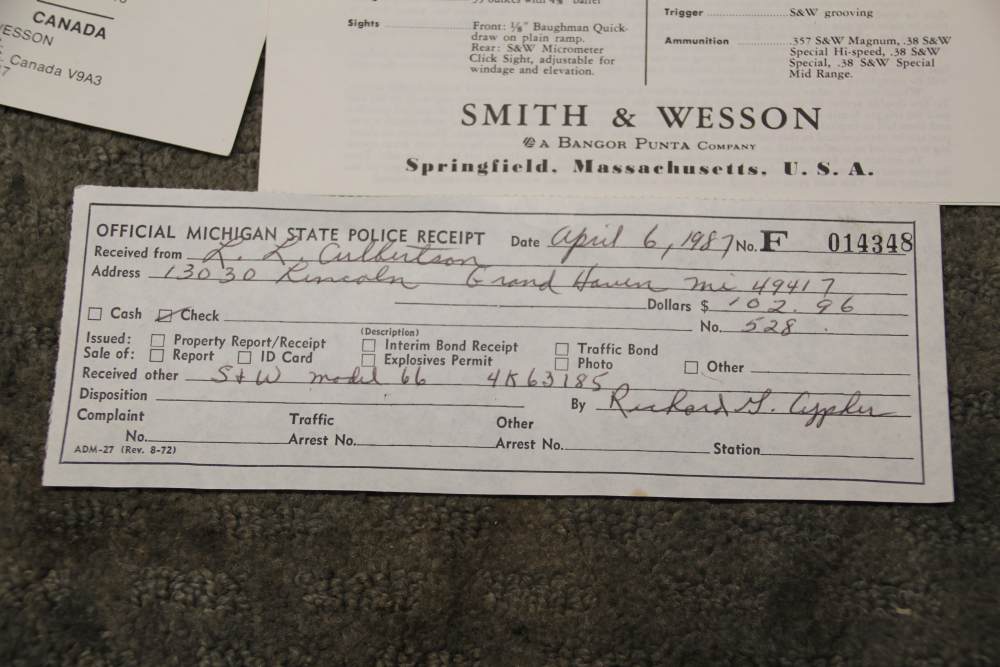 CANADA
WESSON
Canada V9A3
7
Sights Front: 1/8" Baughman Quick-
draw on plain ramp.
Rear: S&W Micrometer
Click Sight, adjustable for
windage and elevation.
Trigger S&W grooving
Ammunition .357 S&W Magnum, .38 S&W
Special Hi-speed, .38 S&W
Special, .38 S&W Special
Mid Range.
SMITH & WESSON
A BANGOR PUNTA COMPANY
Springfield, Massachusetts, U. S. A.
OFFICIAL MICHIGAN STATE POLICE RECEIPT Date April 6, 1987 No. F 014348
Received from L. L. Culbertson
Address 13030 Lincoln Grand Haven mi 49417
Dollars $ 102.96
Cash Check No. 528.
Issued: Property Report/Receipt (Description) Interim Bond Receipt Traffic Bond
Sale of: Report ID Card Explosives Permit Photo Other
Received other S&W model 66 4K63185
Disposition By Richard G. Cypher
Complaint Traffic Other
No. Arrest No. Arrest No. Station
ADM-27 (Rev. 8-72)